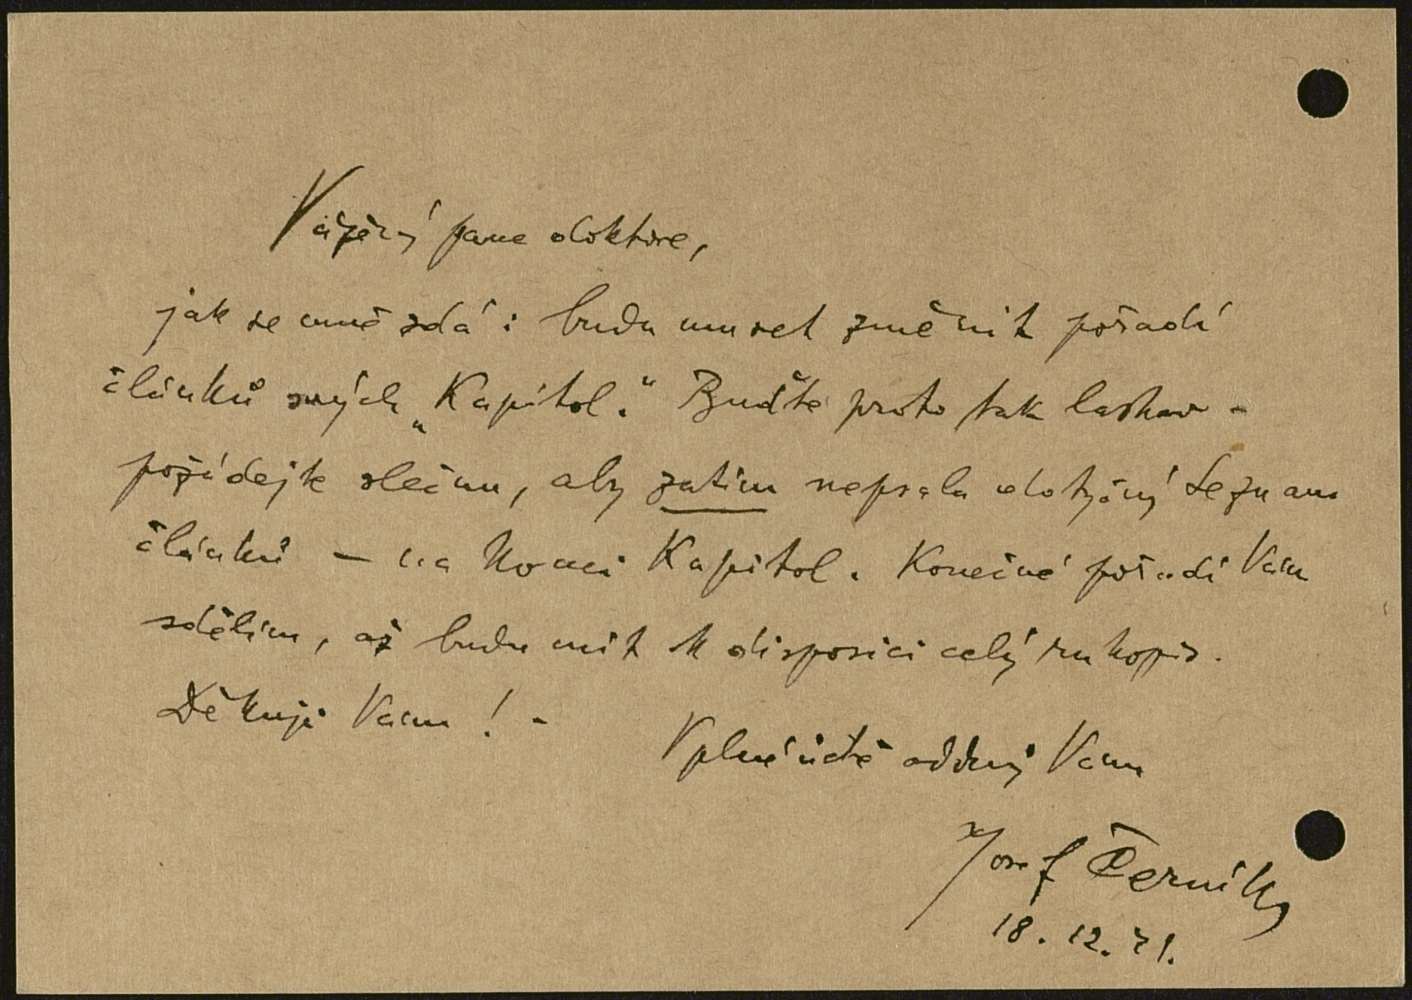 Vážený pane doktore,
jak se mně zdá: budu muset změnit pořadí
článků svých „Kapitol.“ Buďte proto tak laskav -
požádejte slečnu, aby zatím nepsala dotyčný seznam
článků – na konci Kapitol. Konečné pořadí Vám
sdělím, až budu mít k disposici celý rukopis.
Děkuji Vám! -
V plné úctě oddaný Vám
Josef Černík
18. 12. 71.